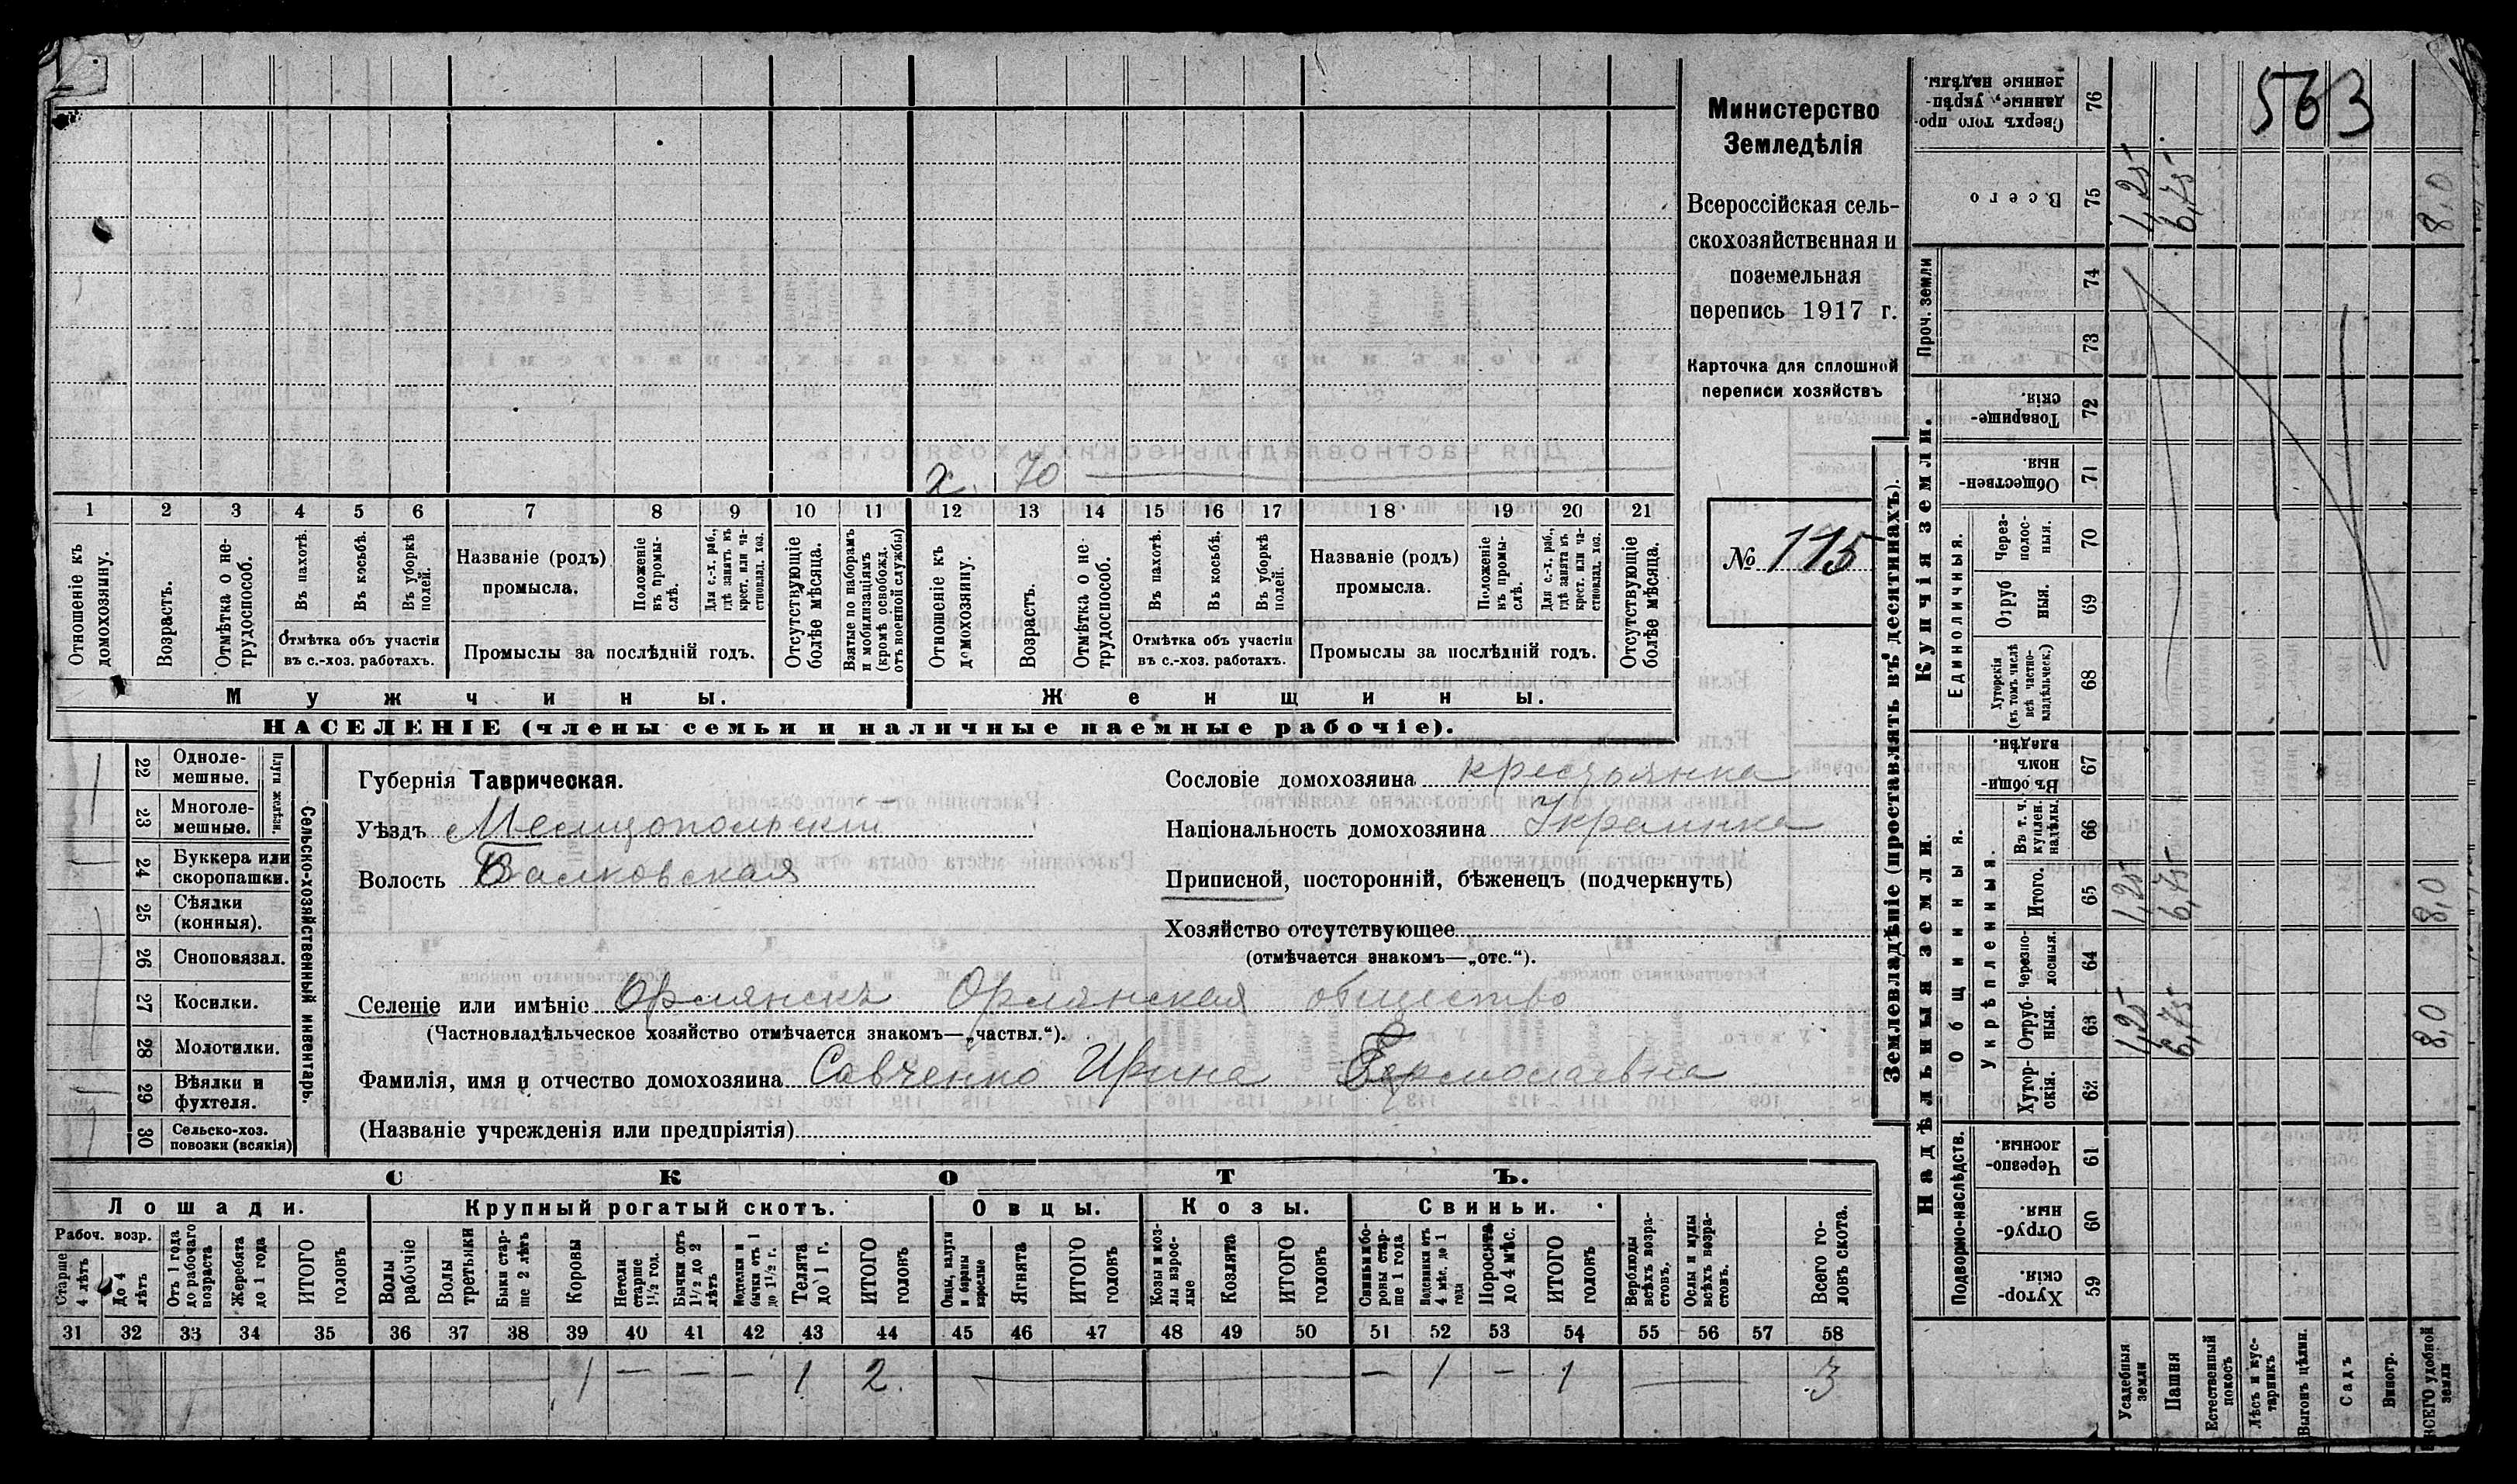 563
Министерство
Земледѣлія
Всероссійская сель-
скохозяйственная и
поземельная
перепись 1917 г.
Карточка для сплошной
переписи хозяйствъ
№ 115
х. 70
1 2 3 4 5 6 7 8 9 10 11 12 13 14 15 16 17 18 19 20 21
Отношеніе къ домохозяину.
Возрастъ.
Отмѣтка о не-трудоспособ.
Въ пахотѣ.
Въ косьбѣ.
Въ уборкѣ полей.
Названіе (родъ) промысла.
Положеніе въ промы-слѣ.
Для с.-х. раб., гдѣ занятъ въ крест. или ча-стновлад. хоз.
Отсутствующіе болѣе мѣсяца.
Взятые по наборамъ и мобилизаціямъ (кромѣ освобожд. отъ военной службы)
Отношеніе къ домохозяину.
Возрастъ.
Отмѣтка о не-трудоспособ.
Въ пахотѣ.
Въ косьбѣ.
Въ уборкѣ полей.
Названіе (родъ) промысла.
Положеніе въ промы-слѣ.
Для с.-х. раб., гдѣ занята въ крест. или ча-стновлад. хоз.
Отсутствующіе болѣе мѣсяца.
Отмѣтка объ участіи въ с.-хоз. работахъ.
Промыслы за послѣдній годъ.
Отмѣтка объ участіи въ с.-хоз. работахъ.
Промыслы за послѣдній годъ.
Мужчины.
Женщины.
НАСЕЛЕНІЕ (члены семьи и наличные наемные рабочіе).
22 Одноле-мешные.
23 Многоле-мешные.
Плуги желѣзн.
24 Буккера или скоропашки.
25 Сѣялки (конныя).
26 Сноповязал.
27 Косилки.
28 Молотилки.
29 Вѣялки и фухтеля.
30 Сельско-хоз. повозки (всякія)
Сельско-хозяйственный инвентарь.
Губернія Таврическая.
Уѣздъ Мелитопольскій
Волость Валковская
Сословіе домохозяина крестьянка
Національность домохозяина Украинка
Приписной, посторонній, бѣженецъ (подчеркнуть)
Хозяйство отсутствующее
(отмѣчается знакомъ—„отс.“).
Селеніе или имѣніе Орлянскъ Орлянская общество
(Частновладѣльческое хозяйство отмѣчается знакомъ—„частвл.“).
Фамилія, имя и отчество домохозяина Савченко Ирина Ермолаевна
(Названіе учрежденія или предпріятія)
СКОТЪ.
Лошади. Крупный рогатый скотъ. Овцы. Козы. Свиньи.
Рабоч. возр.
Старше 4 лѣтъ
До 4 лѣтъ
Отъ 1 года до рабочаго возраста
Жеребята до 1 года
ИТОГО головъ
Волы рабочіе
Волы третьяки
Быки стар-ше 2 лѣтъ
Коровы
Нетели старше 1½ год.
Бычки отъ 1½ до 2 лѣтъ
Телята до 1 г.
ИТОГО головъ
Овцы, валухи и бараны взрослые
Ягнята
ИТОГО головъ
Козы и коз-лы взрос-лые
Козлята
ИТОГО головъ
Свиньи и бо-ровы стар-ше 1 года
Подсвинки отъ 4 мѣс. до 1 года
Поросята до 4 мѣс.
ИТОГО головъ
Верблюды всѣхъ возра-стовъ.
Ослы и мулы всѣхъ возра-стовъ.
Всего го-ловъ скота.
31 32 33 34 35 36 37 38 39 40 41 42 43 44 45 46 47 48 49 50 51 52 53 54 55 56 57 58
1 — — — 1 2. — — 1 — 1 — 3
Землевладѣніе (проставлять въ десятинахъ).
Купчія земли.
Сверхъ того про-данные, укрѣп-ленные надѣлы. 76
Всего 75 1,25 6,75 8,0
Проч. земли 74 73
Товарище-скія. 72
Обществен-ныя. 71
Единоличныя.
Через-полос-ныя. 70
Отруб-ныя. 69
Хуторскія (въ томъ числѣ всѣ частно-владѣльческ.) 68
Надѣльныя земли.
Общинныя.
Въ общи-номъ владѣн. 67
Укрѣпленныя.
Въ т. ч. куплен. надѣлы. 66
Итого. 65 1,25 6,75 8,0
Черезпо-лосныя. 64
Отруб-ныя. 63 1,25 6,75 8,0
Хутор-скія. 62
Подворно-наслѣдств.
Черезпо-лосныя. 61
Отруб-ныя. 60
Хутор-скія. 59
Усадебныя земли
Пашня
Естественный покосъ
Лѣсъ и кус-тарникъ
Выгонъ цѣлин.
Садъ
Виногр.
ВСЕГО удобной земли